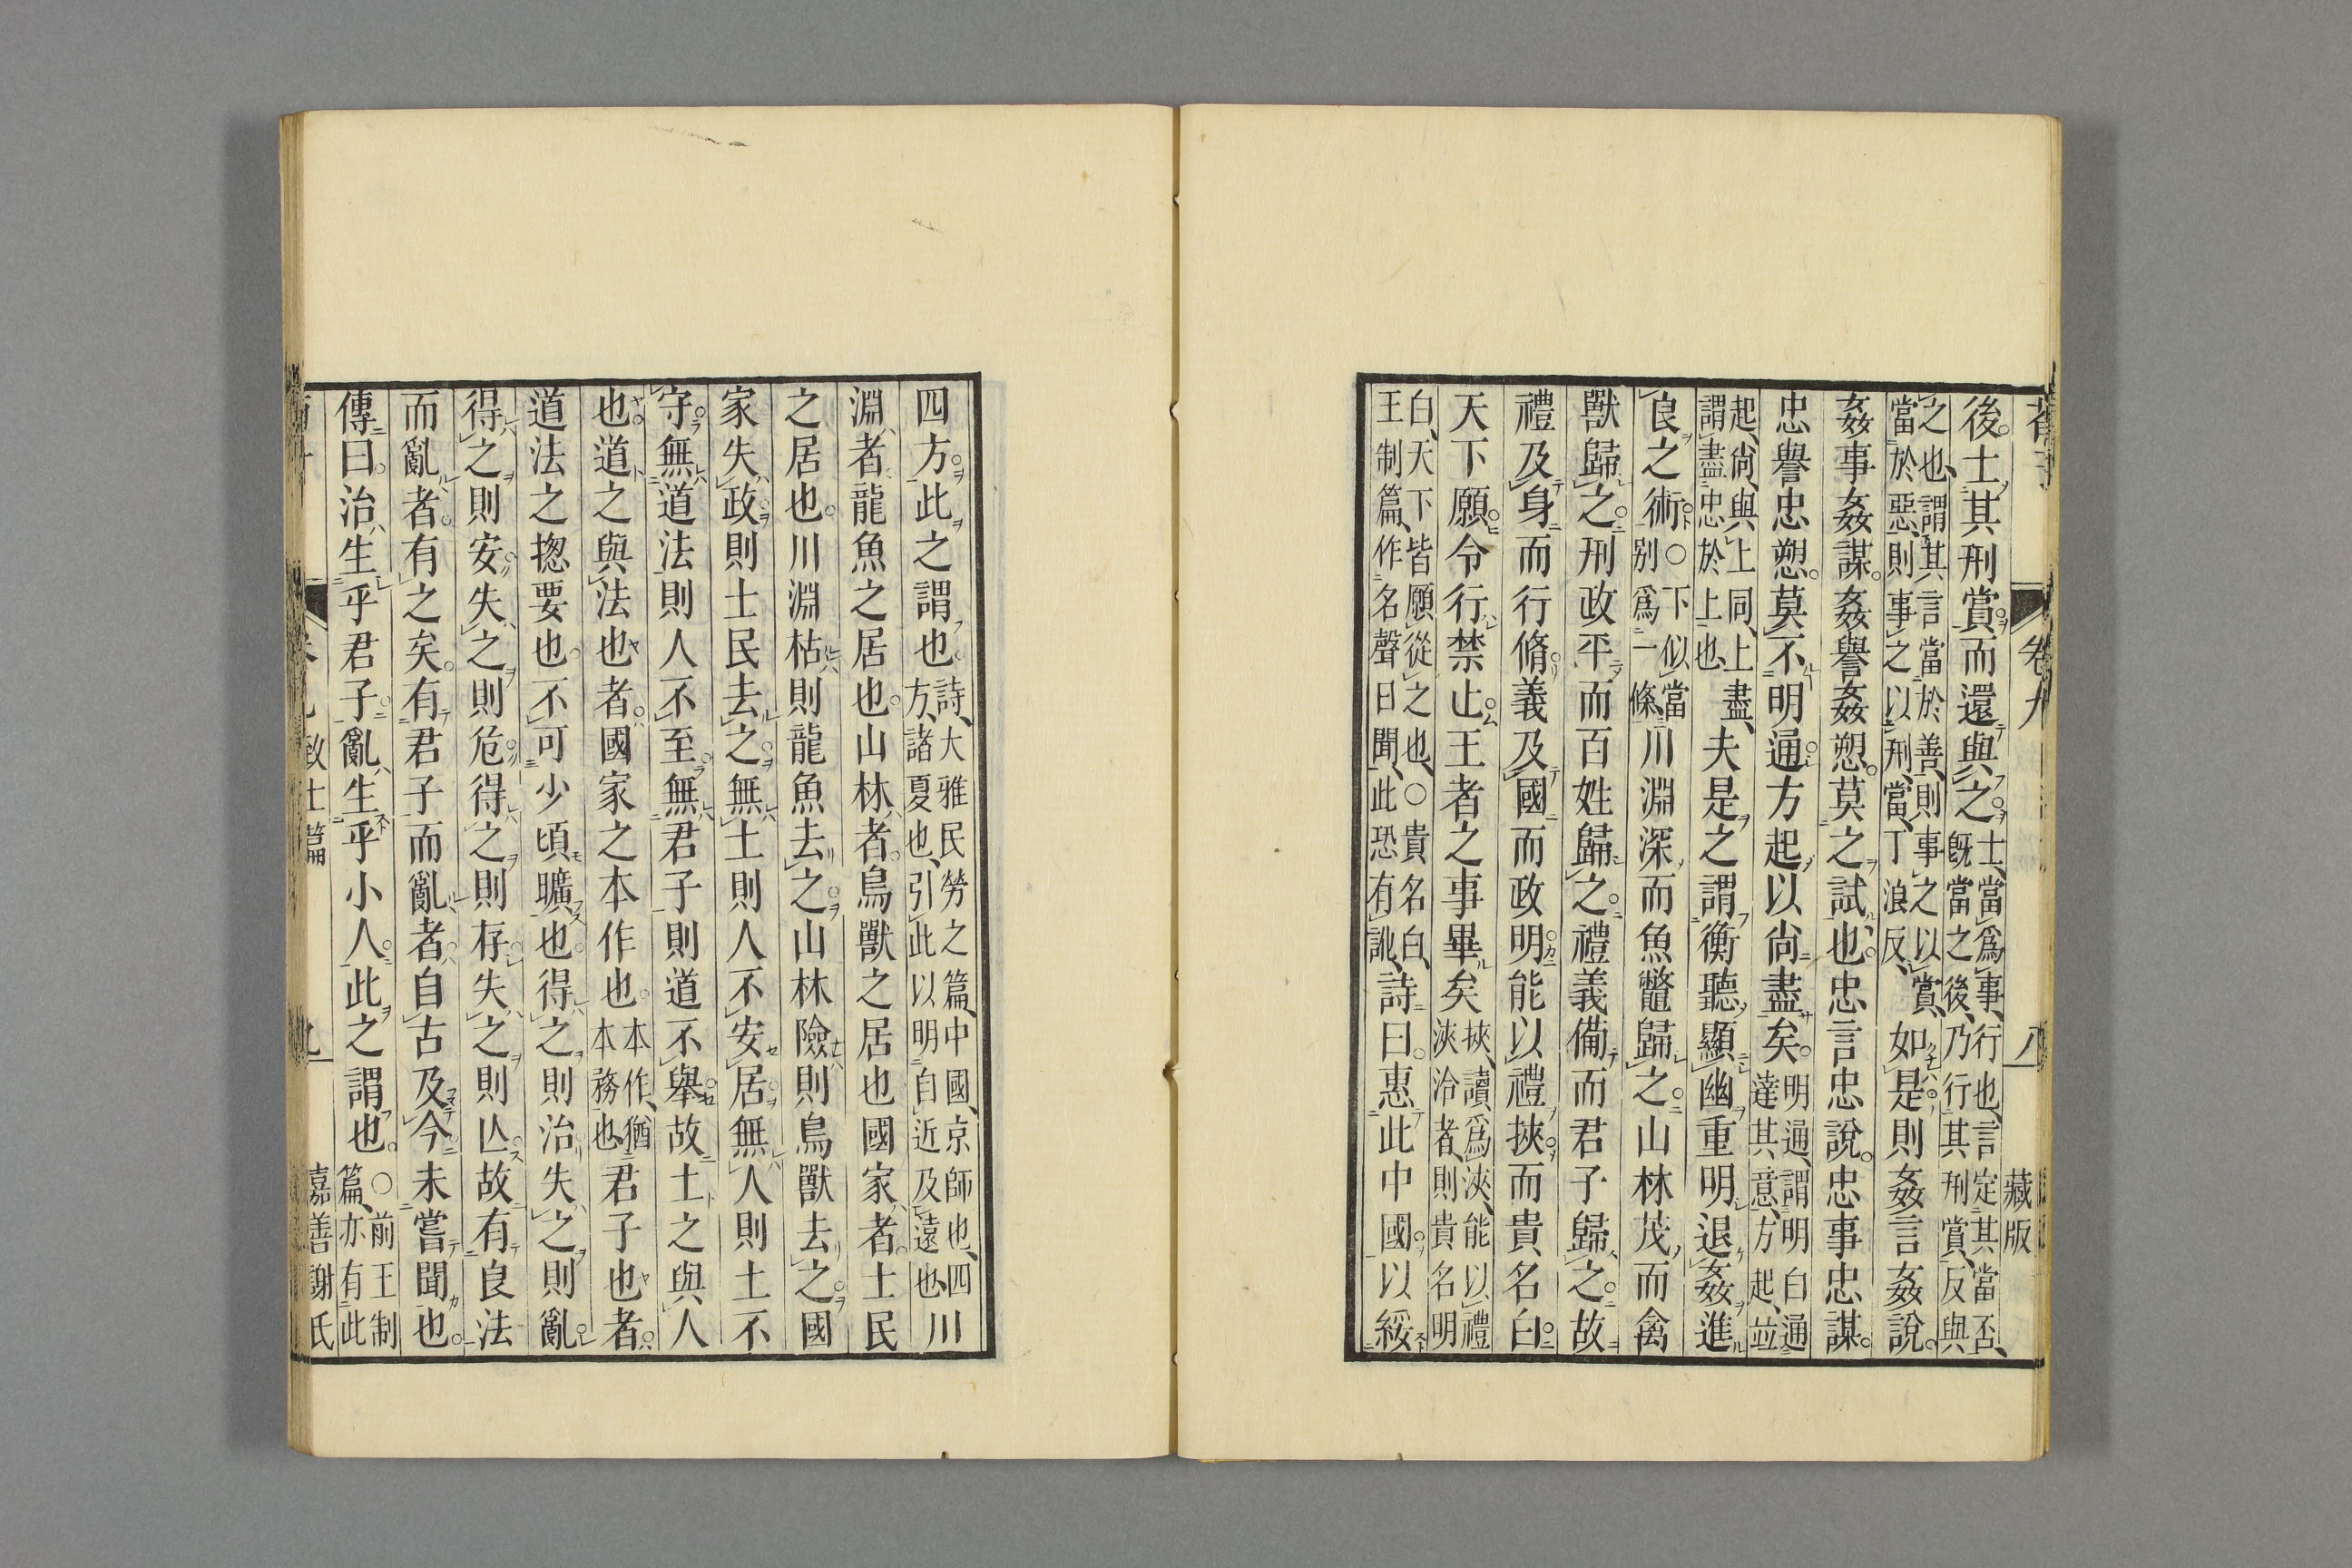 荀子 卷九 八 藏版
後士其刑賞而還與之士當爲事行也言定其當否既當之後乃行其刑賞反與
之也謂其言當於善則事之以賞當於惡則事之以刑當丁浪反如是則姦言姦說
姦事姦謀姦譽姦愬莫之試也忠言忠說忠事忠謀
忠譽忠愬莫不明通方起以尙盡矣明通謂明白通達其意方起並
起尙與上同上盡謂盡忠於上也夫是之謂衡聽顯幽重明退姦進
良之術○下似當別爲一條川淵深而魚鼈歸之山林茂而禽
獸歸之刑政平而百姓歸之禮義備而君子歸之故
禮及身而行脩義及國而政明能以禮挾而貴名白
天下願令行禁止王者之事畢矣挾讀爲浹能以禮浹洽者則貴名明
白天下皆願從之也○貴名白王制篇作名聲日聞此恐有訛詩曰惠此中國以綏
四方此之謂也詩大雅民勞之篇中國京師也四方諸夏也引此以明自近及遠也川
淵者龍魚之居也山林者鳥獸之居也國家者士民
之居也川淵枯則龍魚去之山林險則鳥獸去之國
家失政則士民去之無土則人不安居無人則土不
守無道法則人不至無君子則道不舉故土之與人
也道之與法也者國家之本作也本作猶本務也君子也者
道法之摠要也不可少頃曠也得之則治失之則亂
得之則安失之則危得之則存失之則亾故有良法
而亂者有之矣有君子而亂者自古及今未嘗聞也
傳曰治生乎君子亂生乎小人此之謂也○前王制篇亦有此
致士篇 嘉善謝氏